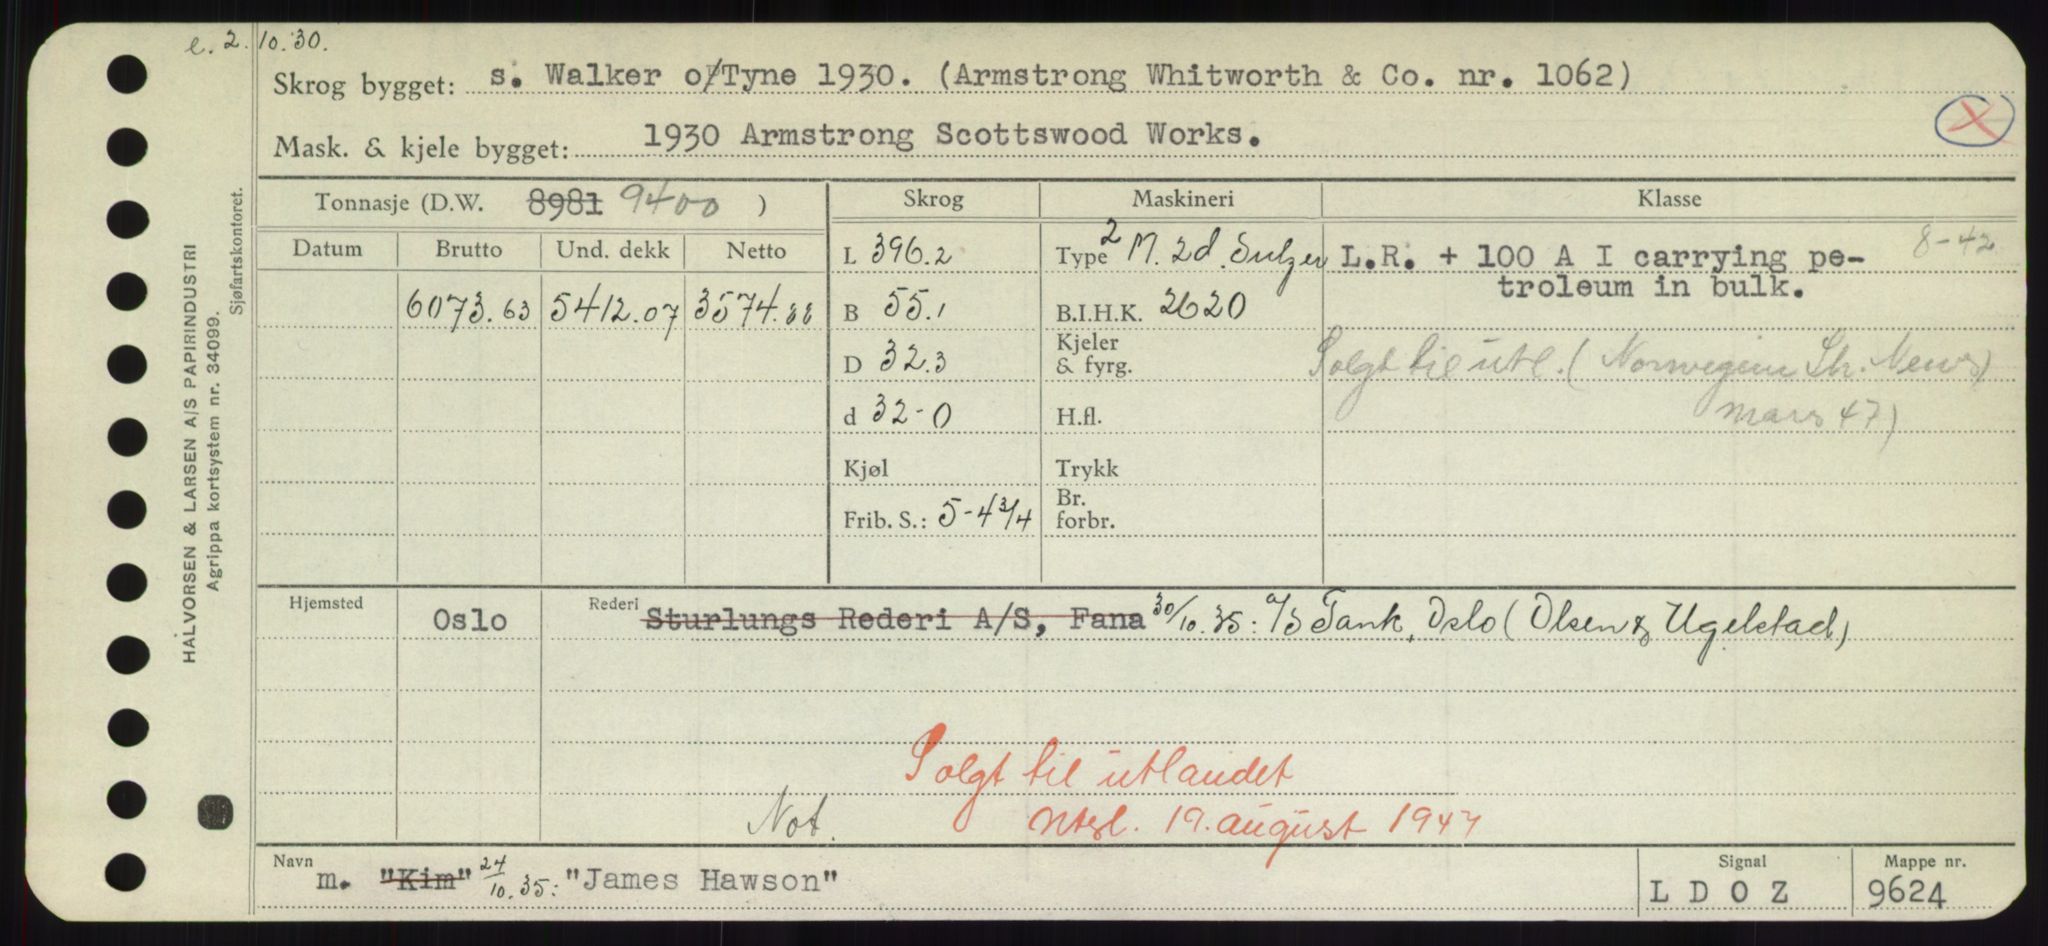 e. 2.10.30.
Skrog bygget: s. Walker o/Tyne 1930. (Armstrong Whitworth & Co. nr. 1062)
Mask. & kjele bygget: 1930 Armstrong Scottswood Works.
X
Tonnasje (D.W. 8981 9400 )
Skrog Maskineri Klasse
Datum Brutto Und. dekk Netto
6073.63 5412.07 3574.88
L 396.2
B 55.1
D 32.3
d 32-0
Kjøl
Frib. S.: 5-4 3/4
Type 2 M. 2d. Sulzer
B.I.H.K. 2620
Kjeler
& fyrg.
H.fl.
Trykk
Br.
forbr.
8-42
L.R. + 100 A I carrying pe-
troleum in bulk.
Solgt til utl. (Norwegian Sh. News
mars 47)
Hjemsted Oslo Rederi Sturlungs Rederi A/S, Fana 30/10.35: A/S Tank, Oslo (Olsen & Ugelstad)
Solgt til utlandet
Not. 19. august 1947
Navn m. "Kim" 24/10.35: "James Hawson"
Signal L D O Z
Mappe nr. 9624
HALVORSEN & LARSEN A/S PAPIRINDUSTRI
Agrippa kortsystem nr. 34099.
Sjøfartskontoret.